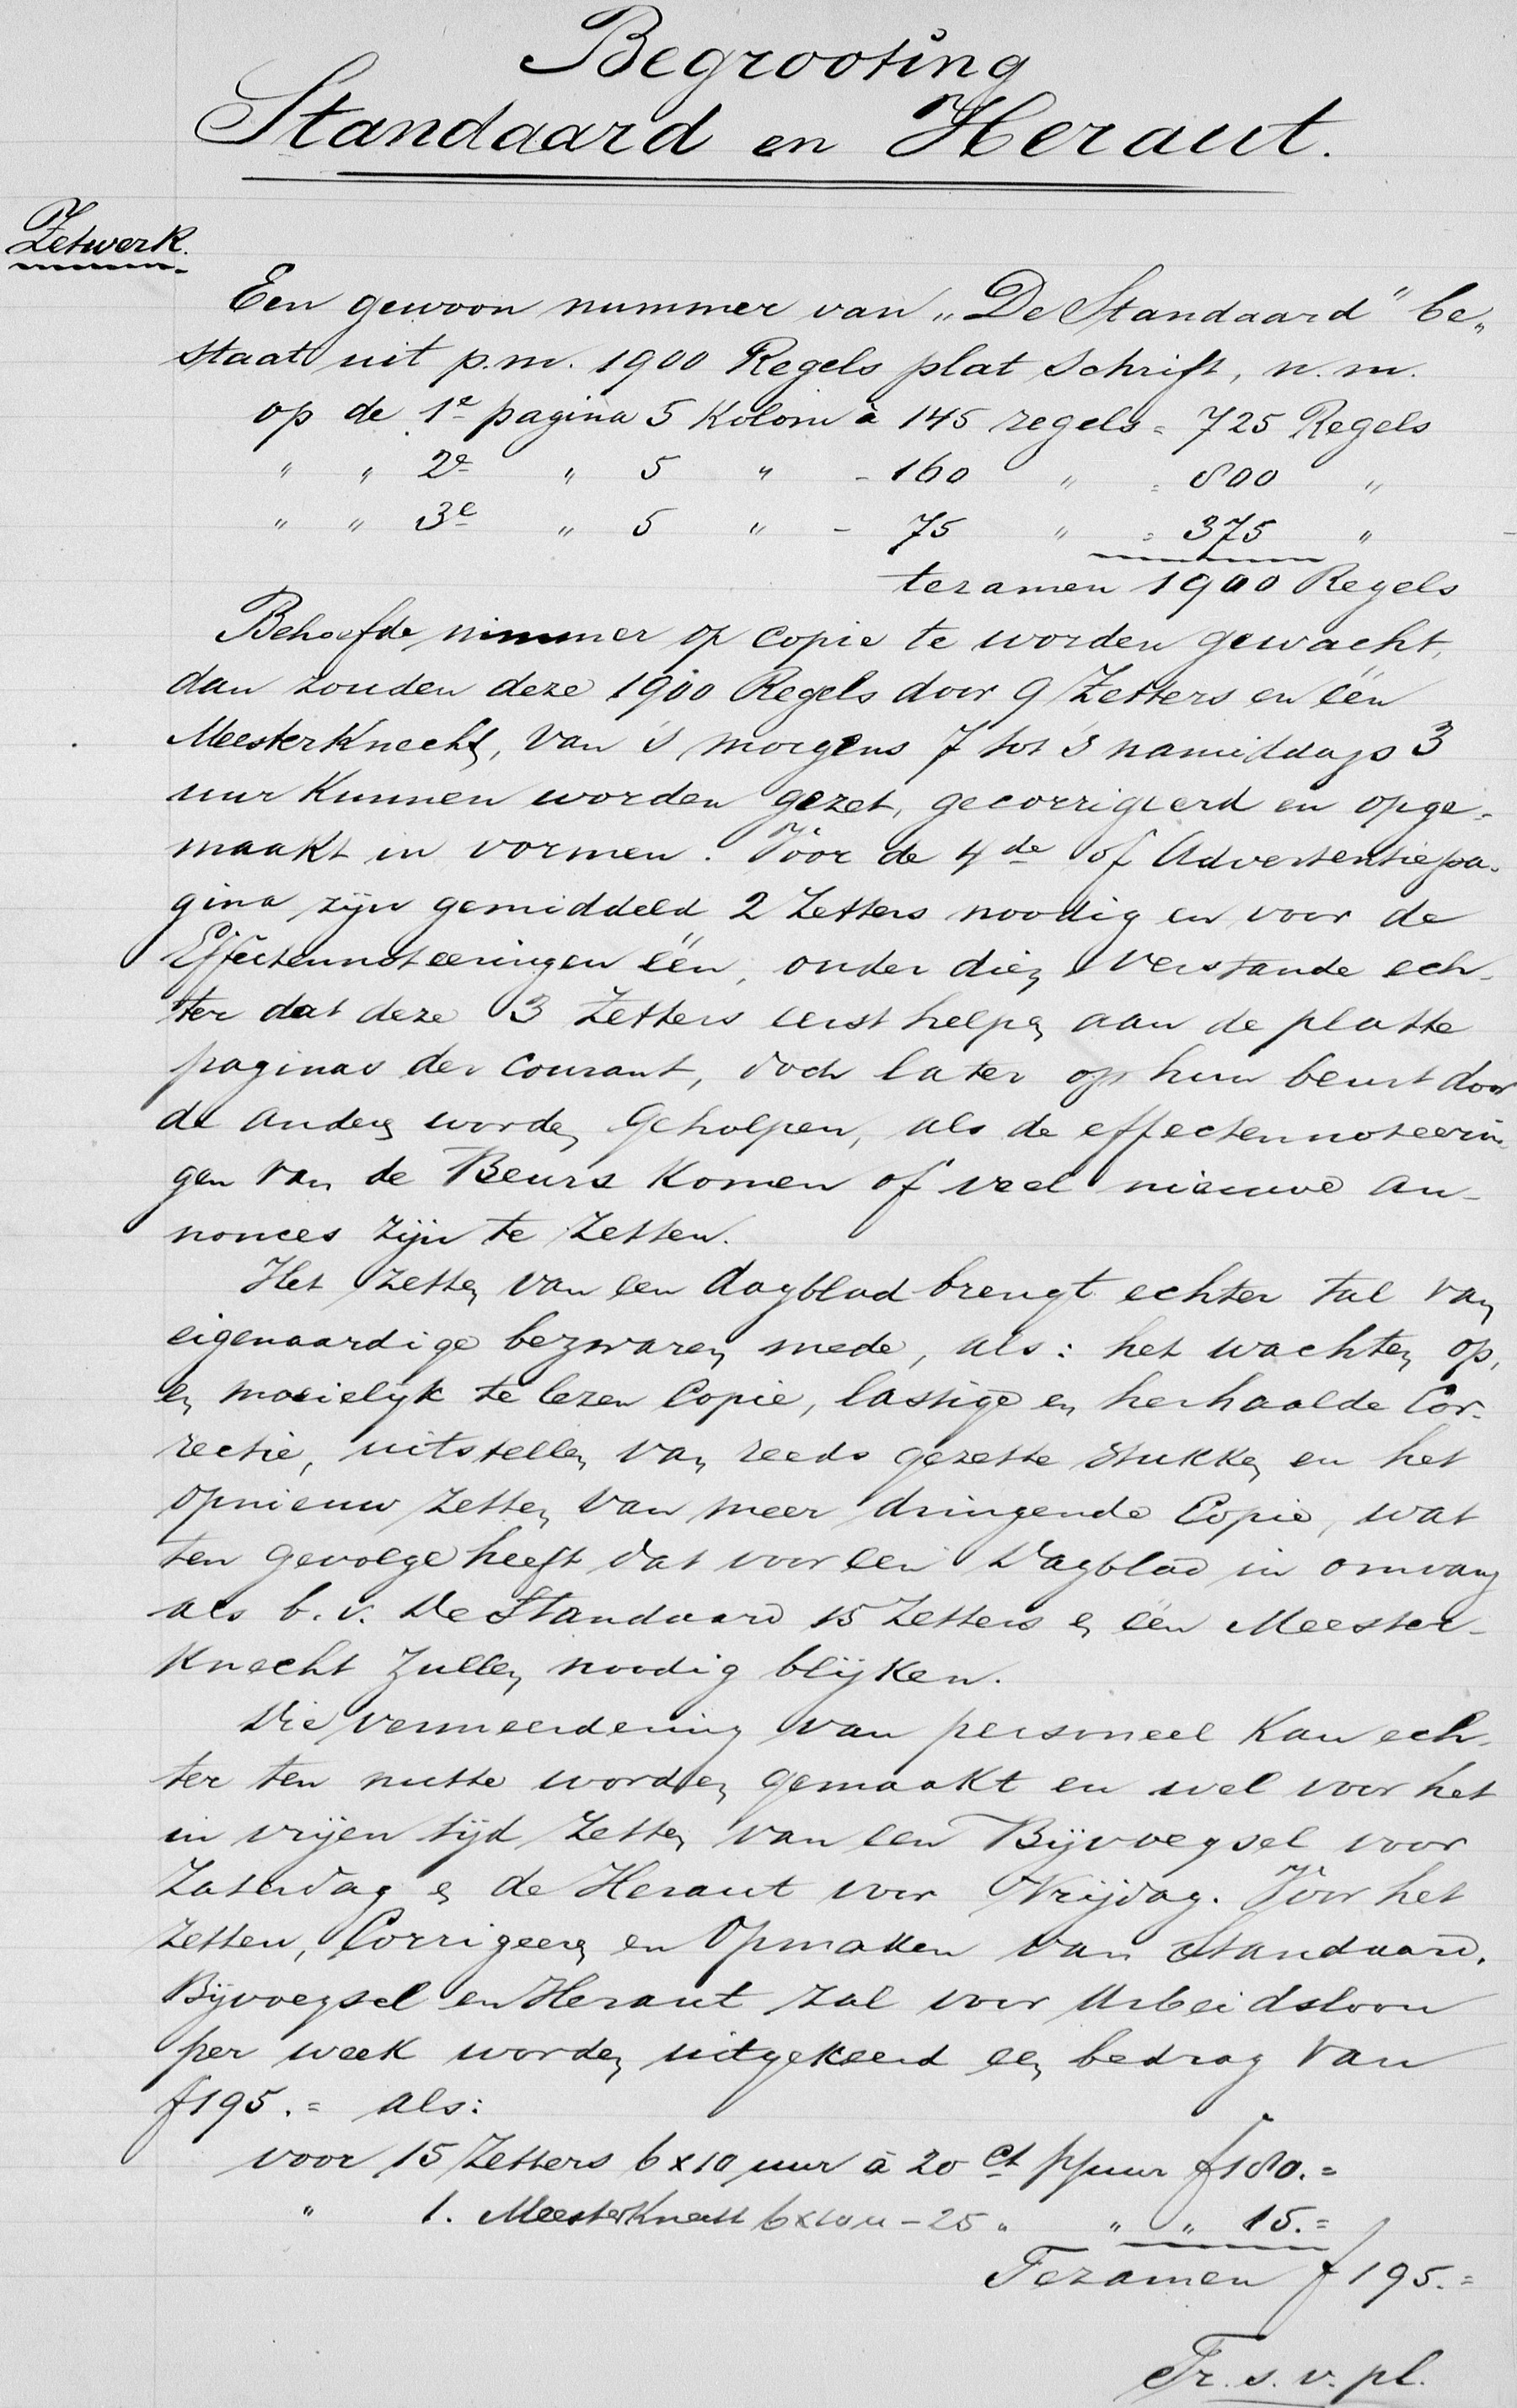 Begrooting
Standaard en Heraut.
Zetwerk.
Een gewoon nummer van „De Standaard" be„
staat uit p.m. 1900 Regels plat schrift, n.m.
op de 1e pagina 5 Kolom à 145 regels = 725 Regels
" " 2e " 5 " - 160 " = 800 "
" " 3e " 5 " - 75 " = 375 "
tezamen 1900 Regels
Behoefde nimmer op copie te worden gewacht,
dan zouden deze 1900 Regels door 9 Zetters en één
Meesterknecht, van 's morgens 7 tot 's namiddags 3
uur kunnen worden gezet, gecorrigeerd en opge-
maakt in vormen. Voor de 4de of Advertentiepa-
gina zijn gemiddeld 2 Zetters noodig en voor de
Effectennoteeringen één, onder dien verstande ech-
ter dat deze 3 Zetters eerst helpen aan de platte
paginas der Courant, doch later op hun beurt door
de anderen worden geholpen, als de effectennoteerin-
gen van de Beurs komen of veel nieuwe an-
nonces zijn te zetten.
Het zetten van een dagblad brengt echter tal van
eigenaardige bezwaren mede, als: het wachten op,
en moeielijk te lezen Copie, lastige en herhaalde Cor-
rectie, uitstellen van reeds gezette stukken en het
opnieuw zetten van meer dringende Copie, wat
ten gevolge heeft dat voor een Dagblad in omvang
als b.v. De Standaard 15 Zetters en één Meester-
Knecht zullen noodig blijken.
Die vermeerdering van personeel kan ech-
ter ten nutte worden gemaakt en wel voor het
in vrijen tijd zetten van een Bijvoegsel voor
Zaterdag en de Heraut voor Vrijdag. Voor het
zetten, Corrigeeren en Opmaken van Standaard,
Bijvoegsel en Heraut zal voor Arbeidsloon
per week worden uitgekeerd een bedrag van
f195.= als:
voor 15 Zetters 6 x 10 uur à 20 ct p/uur f180.=
" 1. Meesterknecht 6x10 u - 25 " " " 15.=
Tezamen f 195.=
Tr. s. v. pl.